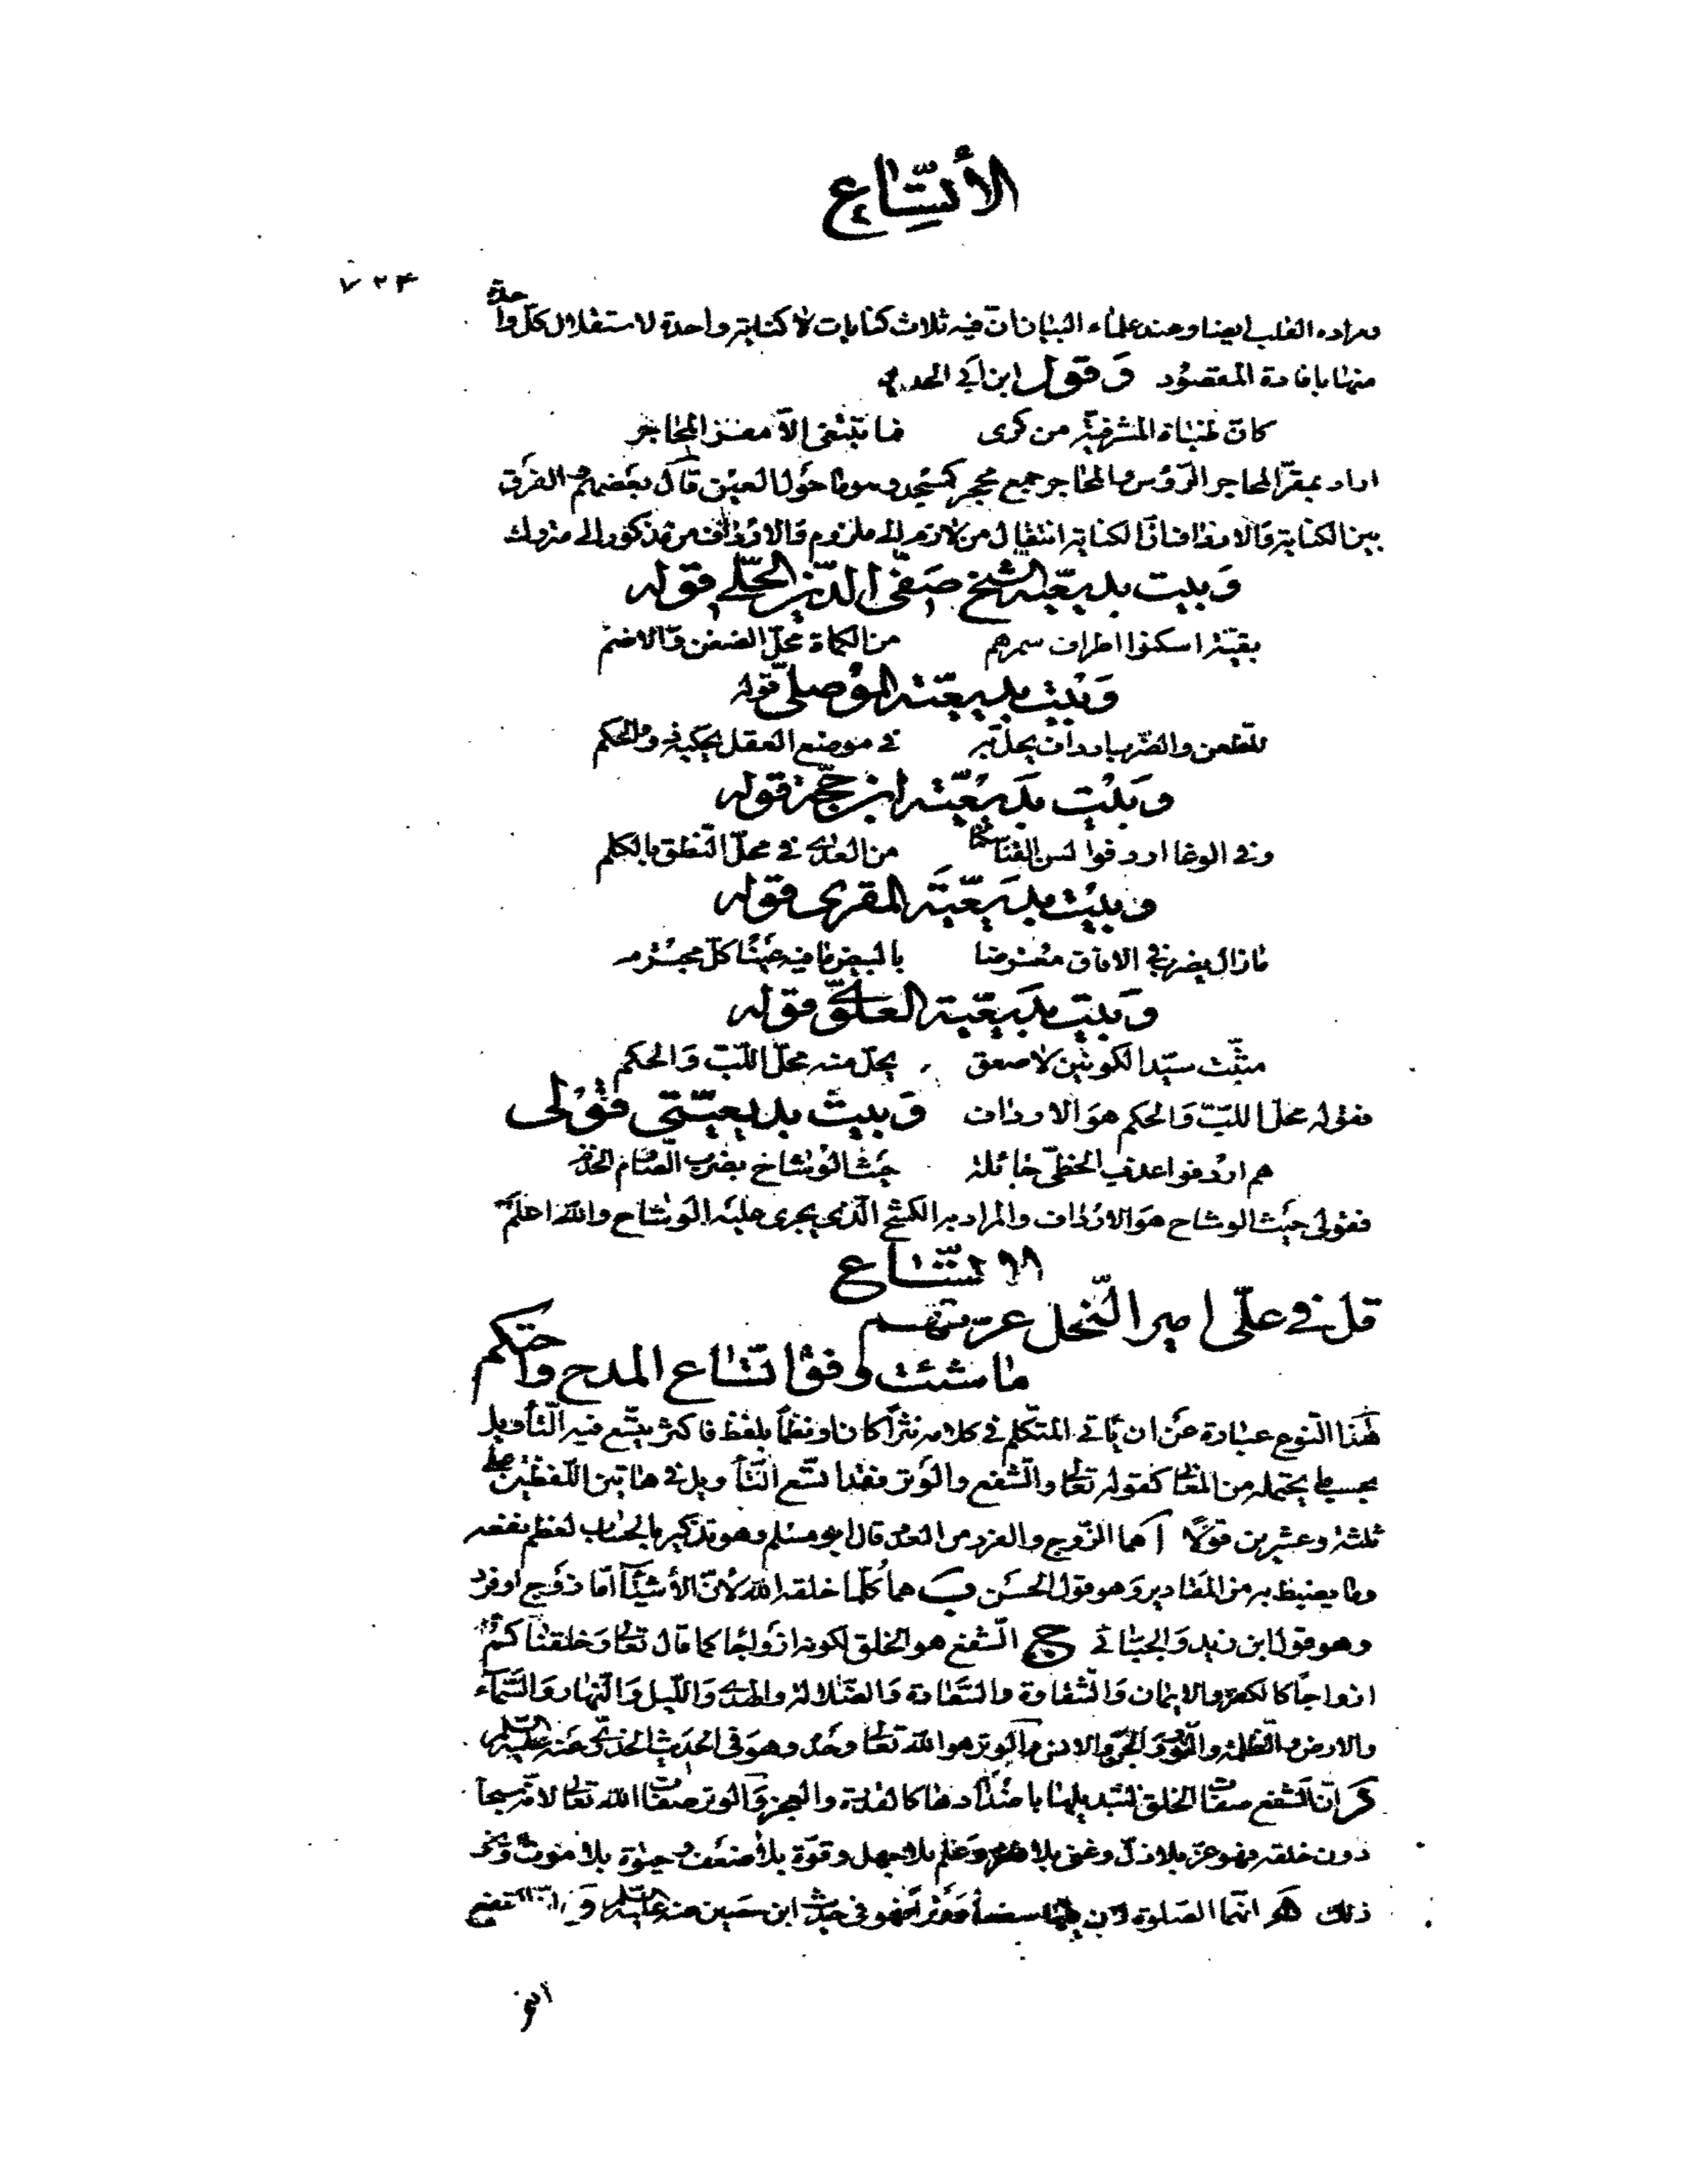 الأتّساع
٧٢٤
ومراده القلب ايضا وعند علماء البيان انّ فيه ثلاث كنايات لا كناية واحدة لاستقلال كلّ واحدة
منها بافادة المقصود وَقول ابن أبي الحديد
كانّ ظباة المشرفيّة من كرى فما تبتغي الّا مقرّ المحاجر
اراد بمقرّ المحاجر الرّؤس والمحاجر جمع محجر كمسجد وهو ما حول العين قال بعضهم الفرق
بين الكناية والارداف انّ الكناية انتقال من لازم الى ملزوم والارداف من مذكور الى متروك
وَبيت بديعيّة الشيخ صفيّ الدّين الحلّي قوله
بفتية اسكنوا اطراف سمرهم من الكماة محلّ الضغن والاضم
وَبيت بديعيّته الموصلي قوله
للطّعن والضّرب ارداف يحلّ به في موضع العقل يحكيه ذو الحكم
وبيت بديعيّته ابن حجّة قوله
وفي الوغا اردفوا لسن القنا سكنا من العدى في محلّ النّطق بالكلم
وبيت بديعيّة المقري قوله
ما زال يضرب في الافاق معترضا بالبيض ما فيه عينا كلّ مجترم
وَبيت بديعيّة العلوي قوله
مثبّت سيّد الكونين لا صعق يحلّ منه محلّ اللّبّ والحكم
فقوله محلّ اللبّ وَالحكم هوَ الارداف وَبيتُ بديعيّتي قولي
هم اردفوا عذب الخطّي جائلة حيث الوشاح بضرب الصّارم الخذم
فقولي حيث الوشاح هوَ الارداف والمراد به الكشح الّذي يجري عليه الوشاح واللّه اعلم
الاتّساع
قل في عليّ امير النّحل عزّتهم
ما شئت وفق اتّساع المدح واحتكم
هذا النّوع عبارة عن ان يأتي المتكلّم في كلامه نثراً كان او نظماً بلفظ فاكثر يتّسع فيه التّأويل
بحسب ما يحتمله من المعاني كقوله تعالى والشّفع والوتر فقد اتّسع التّأويل في هاتين اللّفظتين على
ثلثة وعشرين قولاً آ هما الزّوج والفرد من العدد قال ابو مسلم وهو تذكير بالحساب لعظم نفعه
وما يضبط به من المقادير وهو قول الحسن ب هما كلّما خلقه اللّه لأنّ الأشياء امّا زوج او فرد
وهو قول ابن زيد والجبّائي ج الشّفع هو الخلق لكونه ازواجا كما قال تعالى وَخلقناكم
ازواجاً كالكفر والايمان وَالشّقاوة والسّعادة وَالضّلالة والهدى وَاللّيل وَالنّهار وَالسّماء
والارض والظلمة والنّور والجنّ والانس والوتر هو اللّه تعالى وحده وهو في الحديث الخدري عنه عليه السّلم
د انّ الشّفع صفات الخلق لتبديلها باضدادها كالقدرة والعجز وَالوتر صفات اللّه تعالى لانّه سبحانه
دون خلقه فهو عزّ بلا ذلّ وغنى بلا فقر وعلم بلا جهل وقوّة بلا ضعف وحيوة بلا موت ونحو
ذلك ه انّما الصّلوة لان منها شفعا ووتراً فهو في حديث ابن حصين عنه عليه السّلم وَ